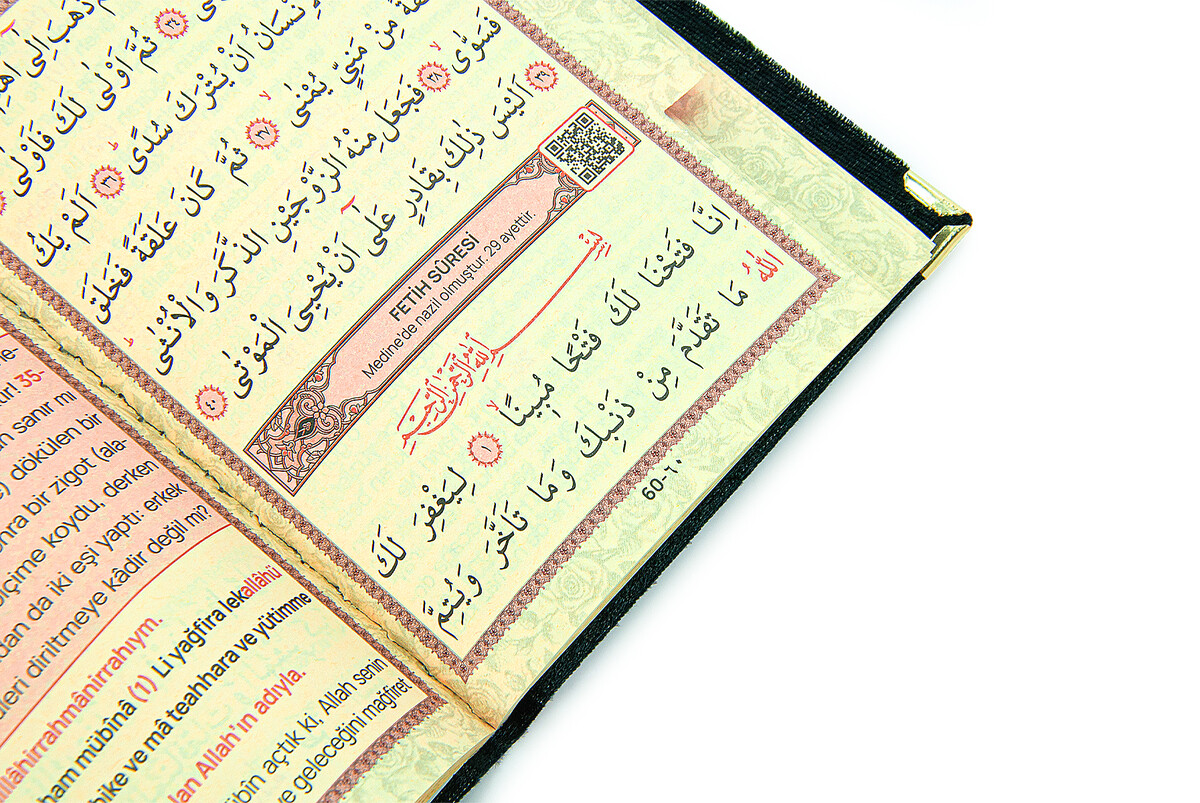 ذَهَبَ اِلٰٓى
٣٤ ثُمَّ اَوْلٰى لَكَ فَاَوْلٰى
اَنْ يُتْرَكَ سُدًى ٣٦ اَلَمْ يَكُ
مِنْ مَنِيٍّ يُمْنٰى ٣٧ ثُمَّ كَانَ عَلَقَةً فَخَلَقَ
فَسَوّٰى ٣٨ فَجَعَلَ مِنْهُ الزَّوْجَيْنِ الذَّكَرَ وَالْاُنْثٰى
٣٩ اَلَيْسَ ذٰلِكَ بِقَادِرٍ عَلٰٓى اَنْ يُحْيِيَ الْمَوْتٰى ٤٠
FETİH SÛRESİ
Medine'de nazil olmuştur. 29 ayettir.
بِسْمِ اللّٰهِ الرَّحْمٰنِ الرَّح۪يمِ
اِنَّا فَتَحْنَا لَكَ فَتْحًا مُب۪ينًا ١ لِيَغْفِرَ لَكَ
اللّٰهُ مَا تَقَدَّمَ مِنْ ذَنْبِكَ وَمَا تَاَخَّرَ وَيُتِمَّ
60-٦٠
35-
sanır mı
dökülen bir
bir zigot (ala-
koydu, derken
da iki eşi yaptı: erkek
diriltmeye kâdir değil mi?
mübînâ (1) Li yağfira lekallâhü
ve mâ teahhara ve yütimme
Allah'ın adıyla.
açtık ki, Allah senin
geleceğini mağfiret